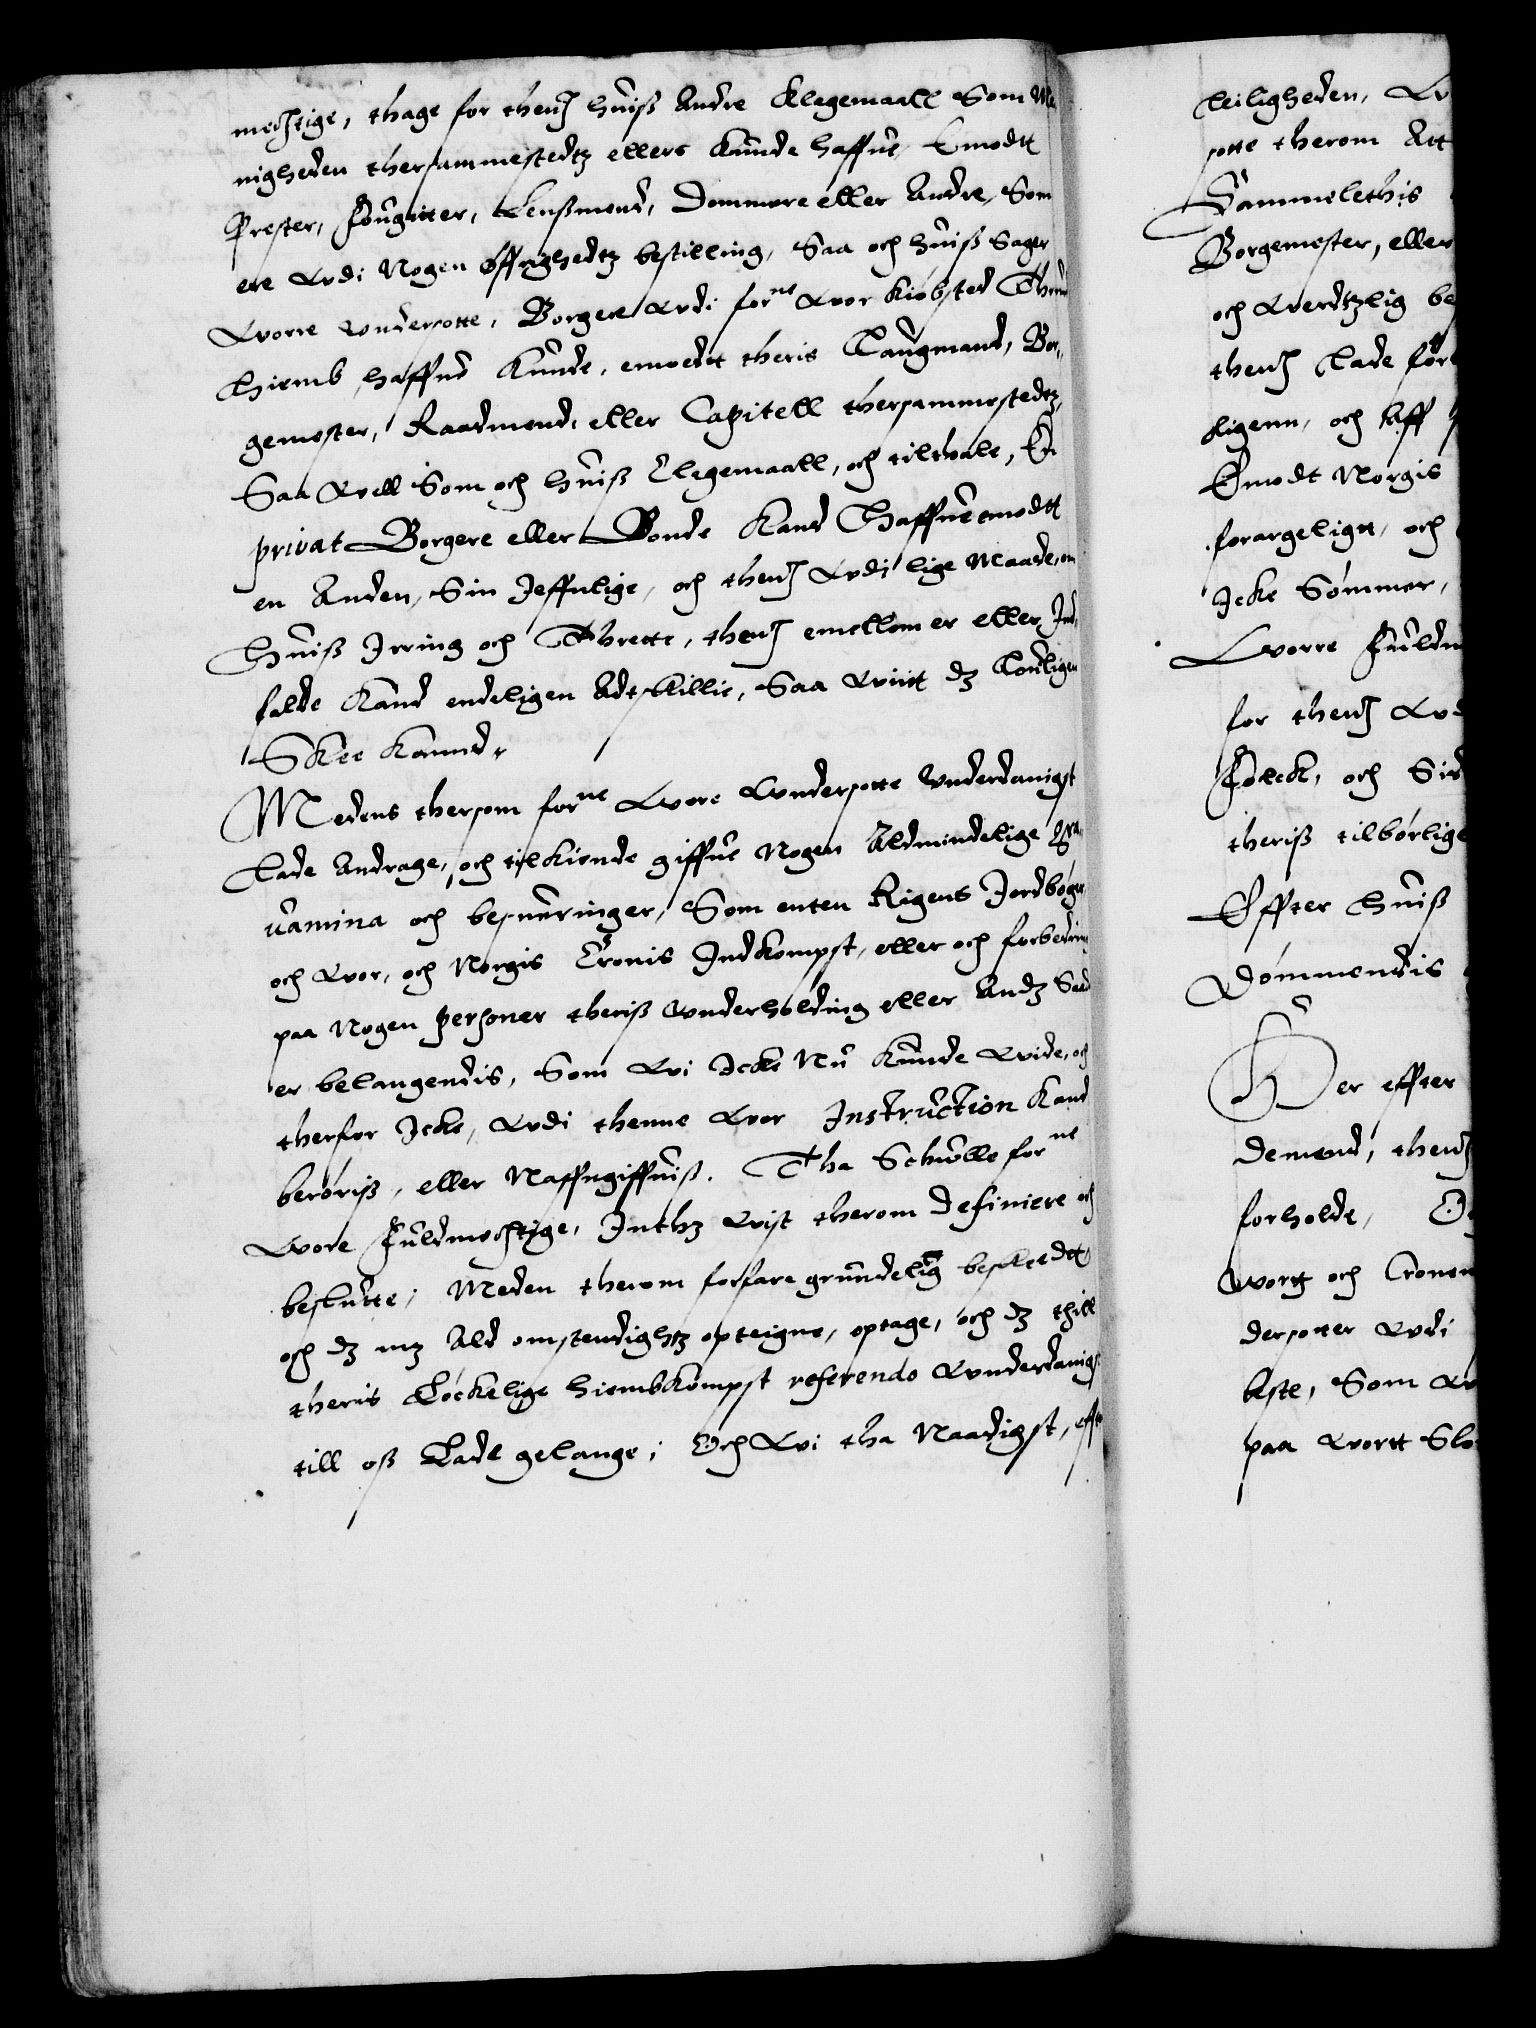 mechtige, thage for thenn huiß Andre Klagemaall Som Me
nigheden thersammestedtz ellers Kunde haffue Emodtt
Prester, fougitter, Lenßmend, Dommere eller Andre, Som
ere Wdi Nogen øffrighedtz bestilling, Saa och huiß Sager
Wore Wndersotte, Borgere Wdi for^ne Wor kiøbsted Thrund
hiemb haffue Kunde, emoedt theris Laugmand, Bor,
gemester, Raadmend, eller Capitell thersammestedtz,
Saa Well Som och huiß Clagemaall, och tilthale, En
privat Borgere eller Bonde Kand Haffue emodtt
en Anden, Sin Jeffnlige, och thenn Wdi lige Maade, om
huiß Jrring och Thrette, thenn emellom er eller Ind,
falde Kand endeligen Adtskillie, Saa Wiitt dz Louligen
Skee Kannd,
Medens thersom for^ne Wore Wndersotte Vnderdanigst
Lade Andrage, och tilkiende giffue Nogen Aldmindelige Gra,
uamina och besuerringer, Som enten Rigens Jordbøger
och Wor, och Norgis Cronis Indkompst, eller och forbedring
paa Nogen personer theriß Wnderholding eller Andz Saad
er belangendis, Som Wi Icke Nu Kunde Wide, och
therfor Icke, Wdi thenne Wor Instruction Kand
berøriß, eller Naffngiffuiß. Tha Schulle for^ne
Wore Fuldmechtige, Inthz Wist therom definiere och
beslutte, Meden therom forfare grundelig beskeedtt
och dz mz Ald omstendighz opteigne, optage, och dz thill
theris Løckelige hiembkompst referendo Wnderdanigst
till oß Lade gelange; Och Wi tha Naadigst, effter
leiligheden,
sotte therom Att
Sammelethis
Borgemester, eller
och Werdtzlig be
thenn Lade for
ligenn, och Aff
Emodt Norgis
forargeligtt, och
Icke Sømmer,
Wore Fuldm
for thenn Wd
Folck, och Sid
theriß tilbørlige
Effter huiß
Dømmendis
Her effter
demend, thenn
forholde,
Wortt och Cronen
dersotter Wdi
beste, Som Wi
paa Wortt Slo